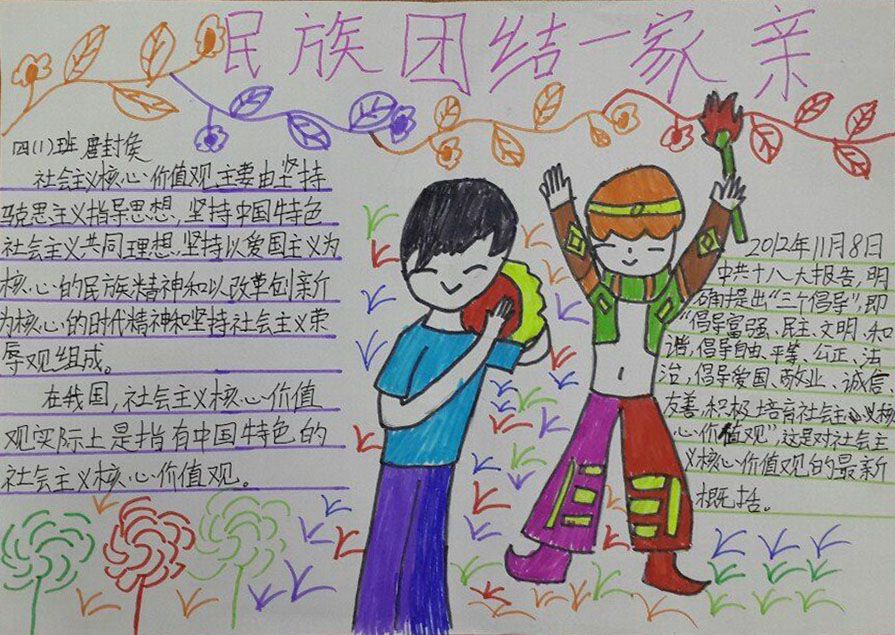 民族团结一家亲
四(1)班 鹿封侯
社会主义核心价值观主要由坚持
马克思主义指导思想,坚持中国特色
社会主义共同理想,坚持以爱国主义为
核心的民族精神和以改革创新
为核心的时代精神和坚持社会主义荣
辱观组成。
在我国,社会主义核心价值
观实际上是指有中国特色的
社会主义核心价值观。
2012年11月8日
中共十八大报告,明
确提出“三个倡导”,即
“倡导富强、民主、文明、和
谐,倡导自由、平等、公正、法
治,倡导爱国、敬业、诚信
友善,积极培育社会主义核
心价值观”,这是对社会主
义核心价值观的最新
概括。